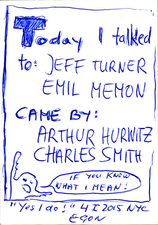 Today I talked
to: JEFF TURNER
EMIL MEMON
CAME BY:
ARTHUR HURWITZ
CHARLES SMITH
IF YOU KNOW
WHAT I MEAN!
"Yes I do!" 4 I 2015 NYC
EGON